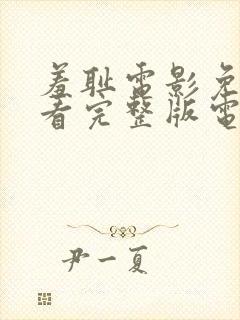 羞耻电影免
看完整版电
尹一夏